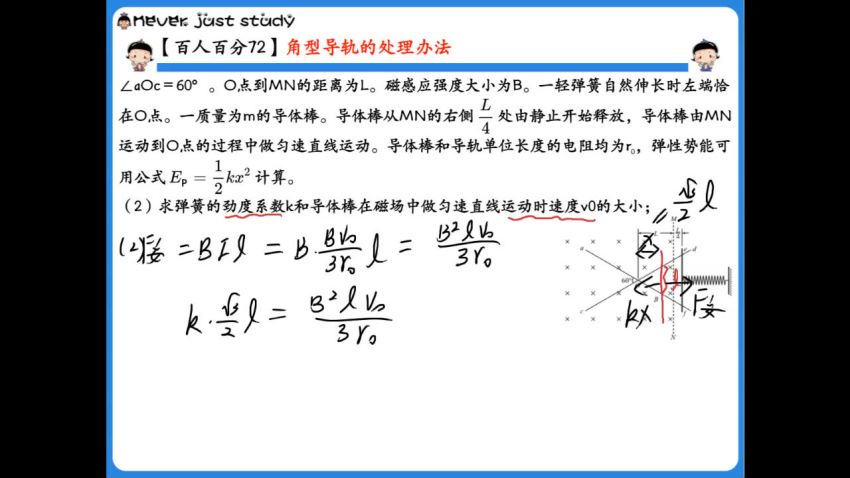 never just study
【百人百分72】角型导轨的处理办法
∠aOc=60° 。O点到MN的距离为L。磁感应强度大小为B。一轻弹簧自然伸长时左端恰
在O点。一质量为m的导体棒。导体棒从MN的右侧 L/4 处由静止开始释放，导体棒由MN
运动到O点的过程中做匀速直线运动。导体棒和导轨单位长度的电阻均为r₀，弹性势能可
用公式 Eₚ = 1/2 kx² 计算。
（2）求弹簧的劲度系数k和导体棒在磁场中做匀速直线运动时速度v0的大小；
√3/2 l
(2) F安 = BIl = B·Bv₀/3r₀ l = B²lv₀/3r₀
k·√3/2 l = B²lv₀/3r₀
M
L
x
a
d
60°
l
c
B
kx
F安
N